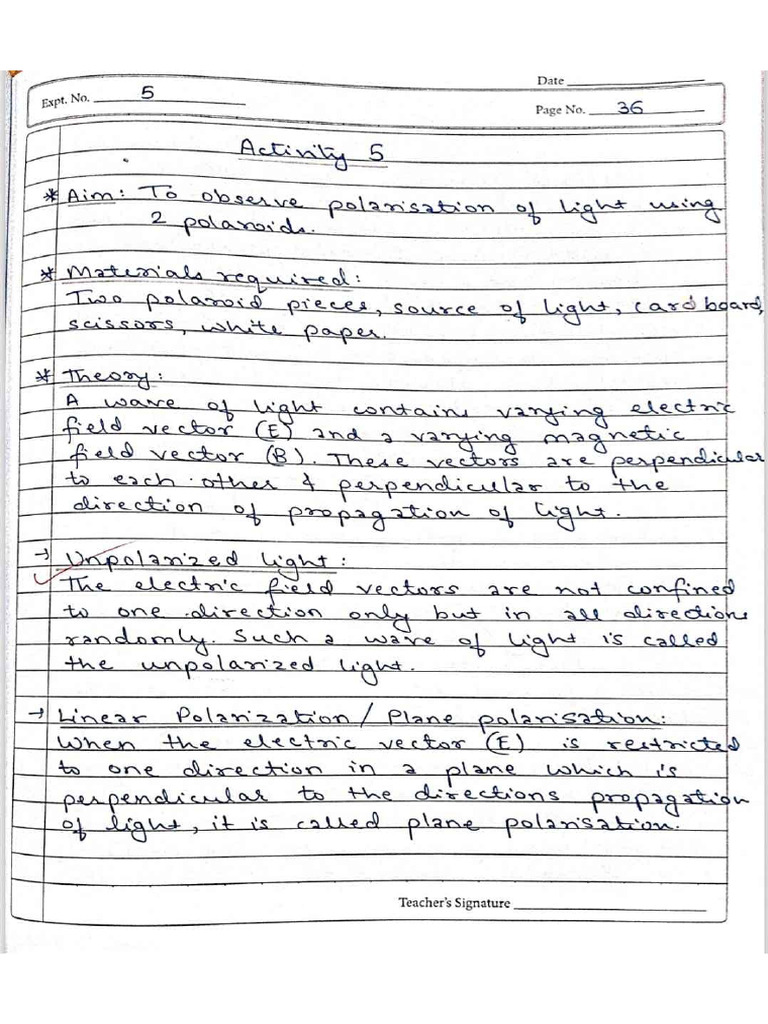 Date
Expt. No. 5
Page No. 36
Activity 5
* Aim: To observe polarisation of light using
2 polaroids.
* Materials required:
Two polaroid pieces, source of light, cardboard,
scissors, white paper.
* Theory:
A wave of light contains varying electric
field vector (E) and a varying magnetic
field vector (B). These vectors are perpendicular
to each other & perpendicular to the
direction of propagation of light.
→ Unpolarized light:
The electric field vectors are not confined
to one direction only but in all directions
randomly. Such a wave of light is called
the unpolarized light.
→ Linear Polarization / Plane polarisation:
When the electric vector (E) is restricted
to one direction in a plane which is
perpendicular to the directions propagation
of light, it is called plane polarisation.
Teacher's Signature